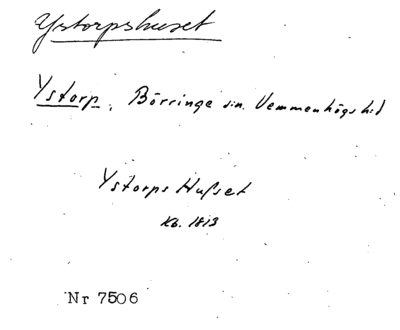 Ystorpshuset
Ystorp, Börringe sn. Vemmenhögs hd
Ystorps Hußet
Kb. 1813
Nr 7506